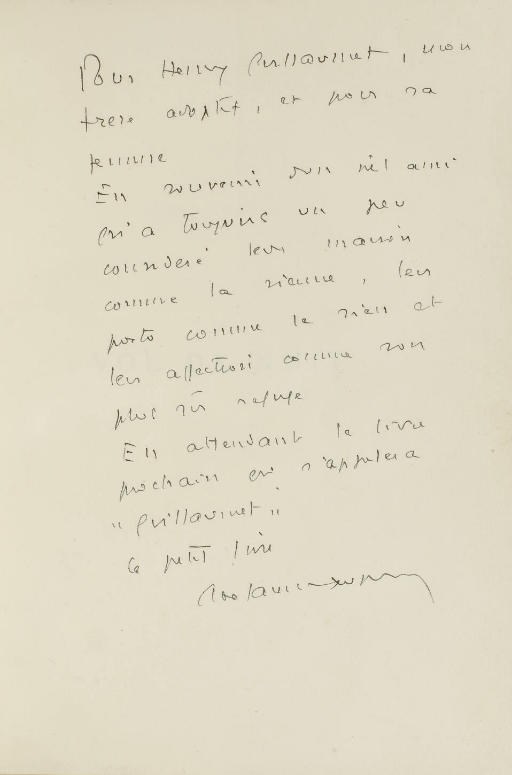 Pour Henry Guillaumet, mon
frère adoptif, et pour sa
femme
En souvenir d'un vieil ami
qui a toujours un peu
considéré leur maison
comme la sienne, leur
porto comme le sien et
leur affection comme son
plus sûr refuge
En attendant le livre
prochain qui s'appellera
"Guillaumet"
ce petit livre
Antoine de Saint-Exupéry